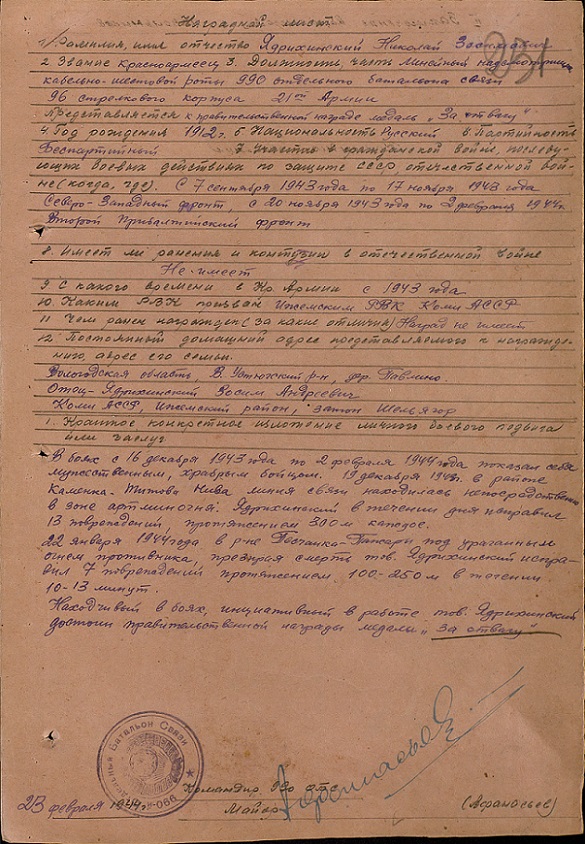 Наградной лист
1/ Фамилия, имя отчество Ядрихинский Николай Зосимович
2. Звание Красноармеец 3. Должность, часть Линейный надсмотрщик
кабельно-шестовой роты 990 отдельного батальона связи
96 стрелкового корпуса 21ой Армии
Представляется к правительственной награде медаль „За отвагу"
4. Год рождения 1912 г. 5 Национальность Русский 6 Партийность
Беспартийный 7. Участие в гражданской войне, последу-
ющих боевых действиях по защите СССР, отечественной вой-
не (когда, где). С 7 сентября 1943 года по 17 ноября 1943 года
Северо-Западный фронт, с 20 ноября 1943 года по 2 февраля 1944 г.
Второй Прибалтийский фронт
8. Имеет ли ранения и контузии в отечественной войне
Не имеет
9 С какого времени в Кр. Армии с 1943 года
10. Каким РВК призван Ижемским РВК Коми АССР
11 Чем ранее награжден (за какие отличия) Наград не имеет
12. Постоянный домашний адрес представляемого к награжде-
нию, адрес его семьи.
Вологодская область, В. Устюжский р-н, дер. Павлино.
Отец - Ядрихинский Зосим Андреевич
Коми АССР, Ижемский район, затон Щельяюр
1. Краткое конкретное изложение личного боевого подвига
или заслуг
В боях с 16 декабря 1943 года по 2 февраля 1944 года показал себя
мужественным, храбрым бойцом. 19 декабря 1943 г. в районе
Каменка - Титово Нива линия связи находилась непосредственно
в зоне артминогня. Ядрихинский в течении дня исправил
13 повреждений, протяжением 300 м каждое.
22 января 1944 года в р-не под ураганным
огнем противника, презирая смерть тов. Ядрихинский испра-
вил 7 повреждений протяжением 100-250 м в течении
10-13 минут.
Находчивый в боях, инициативный в работе тов. Ядрихинский
достоин правительственной награды медаль „За отвагу"
Отдельный Батальон Связи
990
Командир 990 обс
23 февраля 1944 г. Майор (Афанасьев)